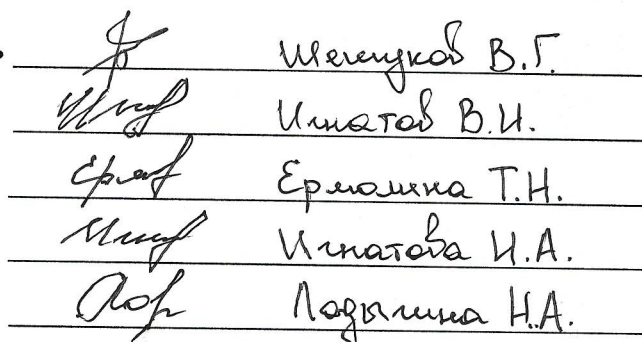 Шемчуков В.Г.
Игнатов В.И.
Ермолина Т.Н.
Игнатова И.А.
Ладыгина Н.А.